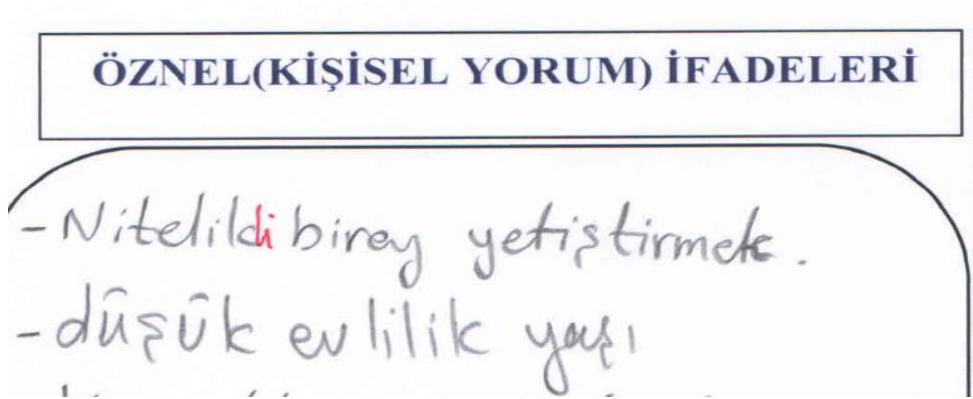 ÖZNEL(KİŞİSEL YORUM) İFADELERİ
- Nitelikli birey yetiştirmek.
- düşük evlilik yaşı